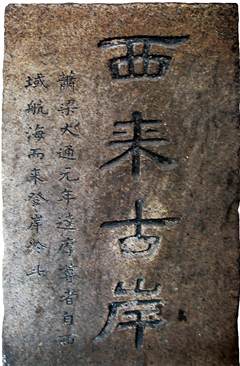 西来古岸
蕭梁大通元年達摩尊者自西
域航海而来登岸於此